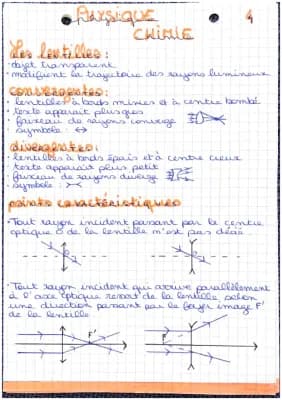 PHYSIQUE
CHIMIE
4
Les lentilles :
• objet transparent
• modifient la trajectoire des rayons lumineux
convergentes :
• lentilles à bords minces et à centre bombé
• texte apparait plus gros
• faisceau de rayons converge
• symbole : ↔
divergentes :
• lentilles à bords épais et à centre creux
• texte apparait plus petit
• faisceau de rayons diverge
• symbole :
points caractéristiques
• Tout rayon incident passant par le centre
optique O de la lentille n'est pas dévié.
• Tout rayon incident qui arrive parallèlement
à l'axe optique ressort de la lentille selon
une direction passant par le foyer image F'
de la lentille
F'
F'